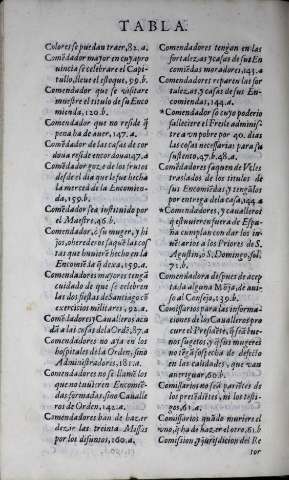 TABLA.
Colores se puedan traer, 82. a.
Comẽdador mayor en cuya pro
uincia se celebrare el Capi-
tulo, lleue el estoque, 99. b.
Comendador que se visitare
muestre el titulo de su Enco
mienda, 120. b.
Comendador que no reside q̃
pena ha de auer, 147. a.
Comẽdador de las casas de cor
doua reside en cordoua 147. a
Comẽdador goza de los frutos
desde el dia que le fue hecha
la merced de la Encomien-
da, 159. b.
Comẽdador sea instituido por
el Maestre, 46. b.
Comendador, ó su muger, y hi
jos, o herederos saquẽ las cos
tas que huuierẽ hecho en la
Encomiẽda q̃ dexa, 159. a.
Comendadores mayores tengã
cuidado de que se celebren
las dos fiestas de Santiago cõ
exercicios militares, 92. a.
Comẽdadores y Caualleros acu
dã a las cosas de la Ordẽ, 87. a
Comendadores no aya en los
hospitales de la Orden, sino
Administradores, 181. a.
Comẽdadores no se llamẽ los
que no tuuierẽ Encomiẽ-
das formadas, sino Caualle
ros de Orden, 142. a.
Comendadores han de hazer
dezir las treinta Missas
por los difuntos, 160. a.
Comendadores tengan en las
fortalezas y casas de sus En
comiẽdas moradores, 143. a
Comendadores reparen las for
talezas, y casas de sus Enco-
miendas, 144. a.
* Comendador so cuyo poderio
fallesciere el Freile adminis-
tre a vn pobre por 40. dias
las cosas necessarias para su
sustento, 47. b. 48. a.
Comẽdadores saquen de Veles
traslados de los titulos de
sus Encomiẽdas, y tengã los
por entrega de la casa, 144. a
* Comendadores, y caualleros
q̃ estuuierẽ fuera de Espa-
ña cumplan con dar los in-
uẽtarios a los Priores de S.
Agustin, ò S. Domingo, fol.
72. b.
Comendadora despues de acep
tada alguna Mõja, de aui-
so al Consejo, 139. b.
Comissarios para las informa-
ciones de los Caualleros pro
cure el Presidẽte, q̃ seã bue-
nos sugetos, y q̃ sus mugeres
no tẽgã sospecha de defecto
en las calidades, que van
aueriguar, 60. b.
Comissarios no seã pariẽtes de
los pretẽdiẽtes, ni los testi-
gos, 61. a.
Comissarios quãdo muriere el
vno, q̃ ha de hazer el otro, 61. b
Comission y jurisdicion del Re
tor